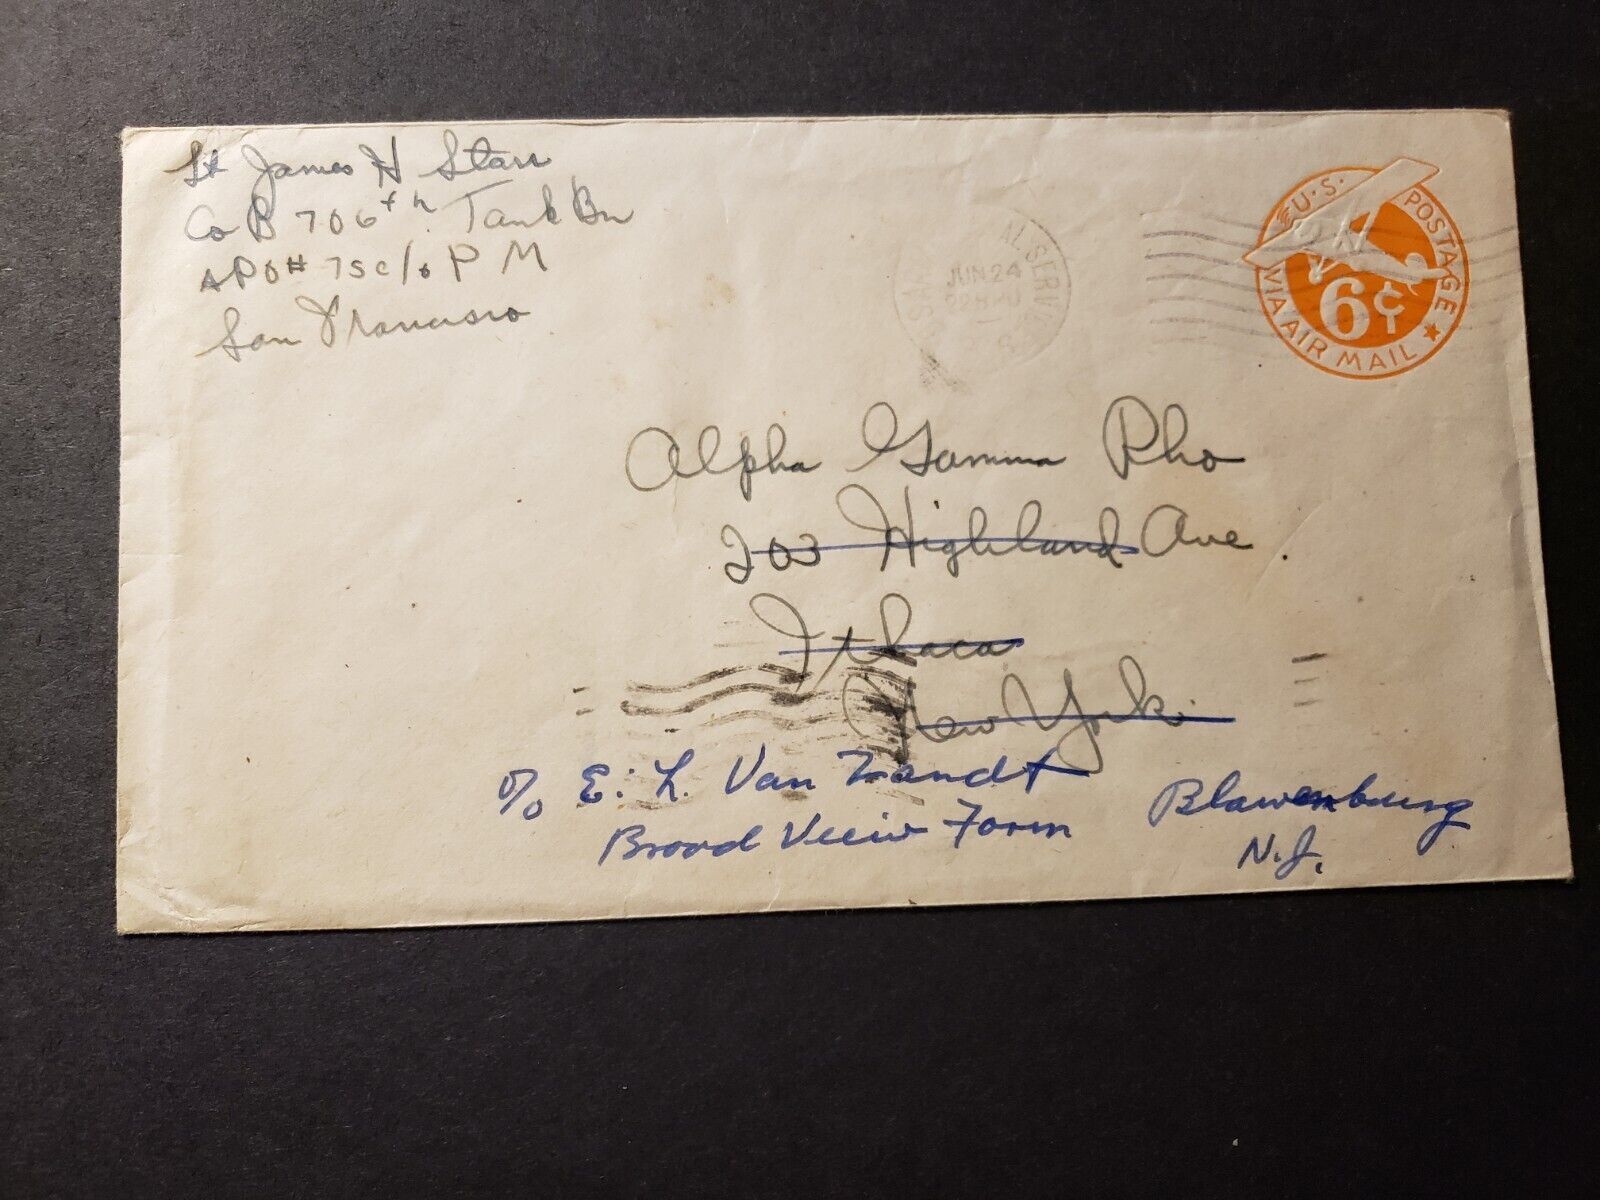 Lt James H Starr
Co B 706th Tank Bn
APO # 75 c/o P M
San Francisco
U.S. POSTAGE
VIA AIR MAIL
6¢
JUN 24
Alpha Gamma Rho
203 Highland Ave.
Ithaca
New York
c/o E. L. Van Zandt
Broad Veiw Farm Blawenburg
N.J.